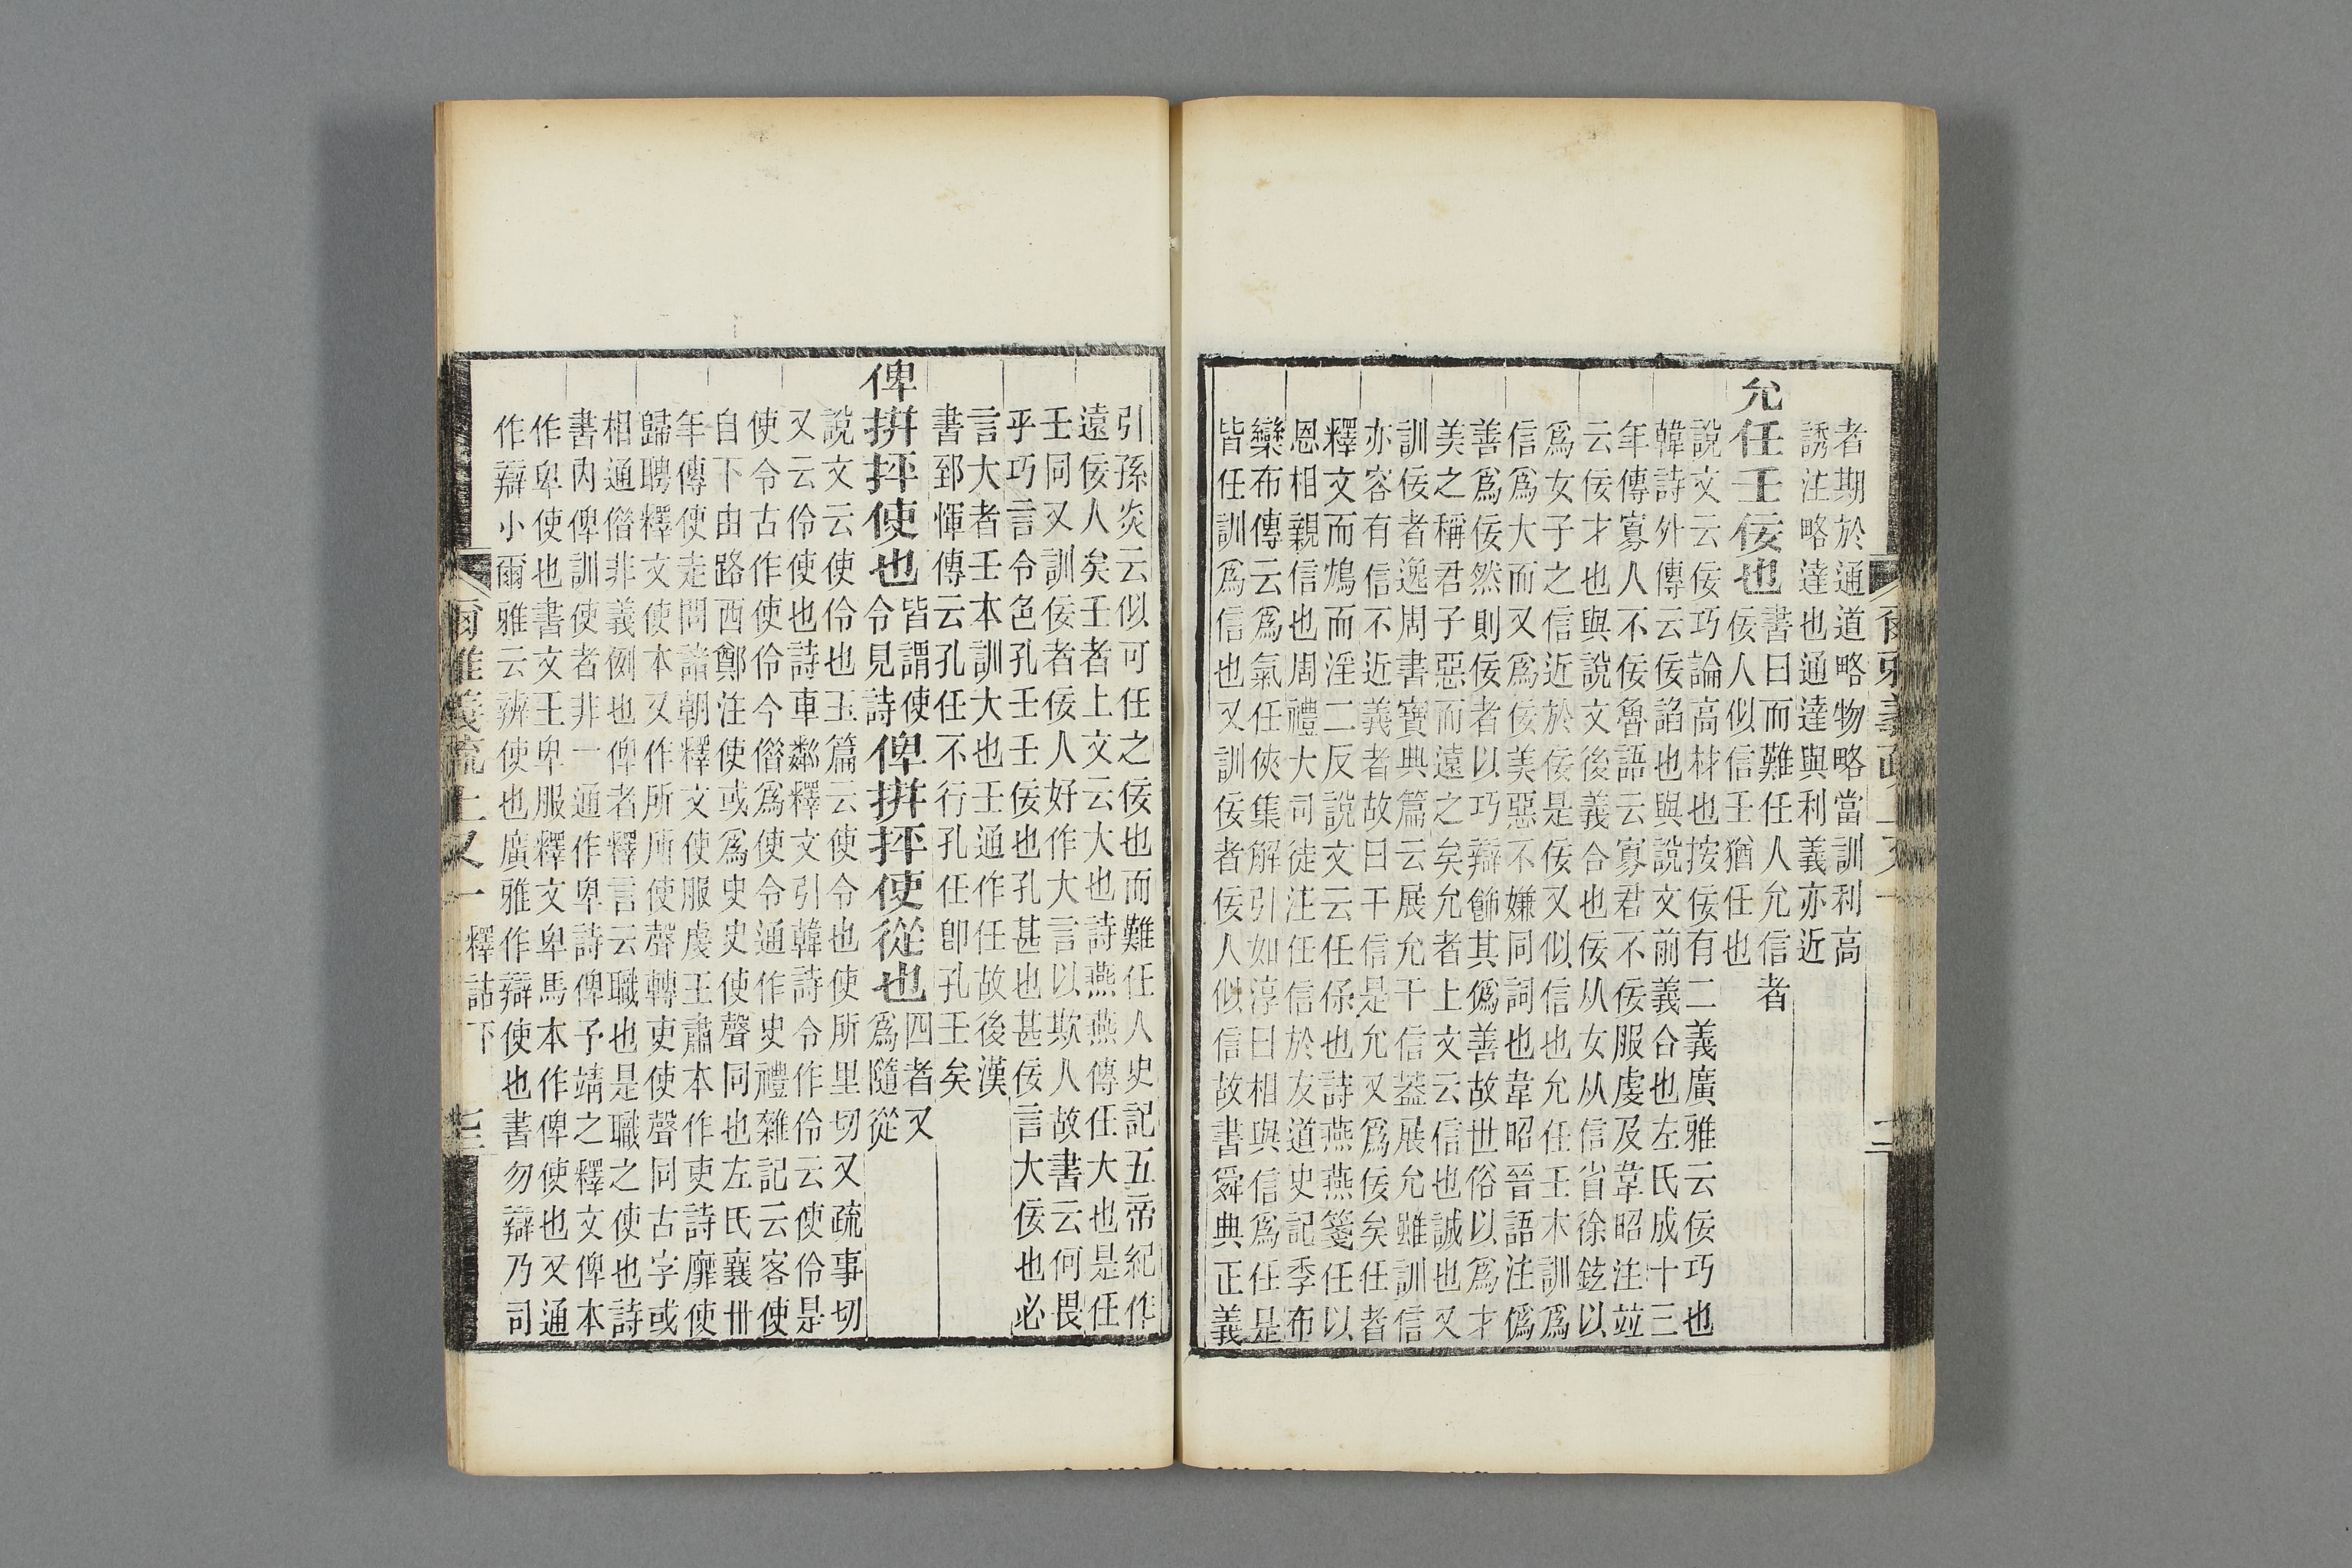 者期於通道略物略當訓利高
誘注略達也通達與利義亦近
允任壬佞也書曰而難任人允信者佞人似信壬猶任也
說文云佞巧讇高材也按佞有二義廣雅云佞巧也
韓詩外傳云佞諂也與說文前義合也左氏成十三
年傳寡人不佞魯語云寡君不佞服虔及韋昭注竝
云佞才也與說文後義合也佞从女从信省徐鉉以
爲女子之信近於佞是佞又似信也允任壬本訓爲
信爲大而又爲佞美惡不嫌同詞也韋昭晉語注僞
善爲佞然則佞者以巧辯飾其僞善故世俗以爲才
美之稱君子惡而遠之矣允者上文云信也誠也又
訓佞者逸周書寶典篇云展允干信葢展允雖訓信
亦容有信不近義者故曰干信是允又爲佞矣任者
釋文而鴆而淫二反說文云任保也詩燕燕箋任以
恩相親信也周禮大司徒注任信於友道史記季布
欒布傳云爲氣任俠集解引如淳曰相與信爲任是
皆任訓爲信也又訓佞者佞人似信故書舜典正義
引孫炎云似可任之佞也而難任人史記五帝紀作
遠佞人矣壬者上文云大也詩燕燕傳任大也是任
壬同又訓佞者佞人好作大言以欺人故書云何畏
乎巧言令色孔壬壬佞也孔甚也甚佞言大佞也必
言大者壬本訓大也壬通作任故後漢
書郅惲傳云孔任不行孔任卽孔壬矣
俾拼抨使也皆謂使令見詩俾拼抨使從也四者又爲隨從
說文云使伶也玉篇云使令也使所里切又疏事切
又云伶使也詩車鄰釋文引韓詩令作伶云使伶是
使令古作使伶今偕爲使令通作史禮雜記云客使
自下由路西鄭注使或爲史史使聲同也左氏襄卅
年傳使走問諸朝釋文使服虔王肅本作吏詩靡使
歸聘釋文使本又作所所使聲轉吏使聲同古字或
相通偕非義例也俾者釋言云職也是職之使也詩
書內俾訓使者非一通作卑詩俾予靖之釋文俾本
作卑使也書文王卑服釋文卑馬本作俾使也又通
作辯小爾雅云辨使也廣雅作辯使也書勿辯乃司
爾雅義疏上又一 釋詁下 三